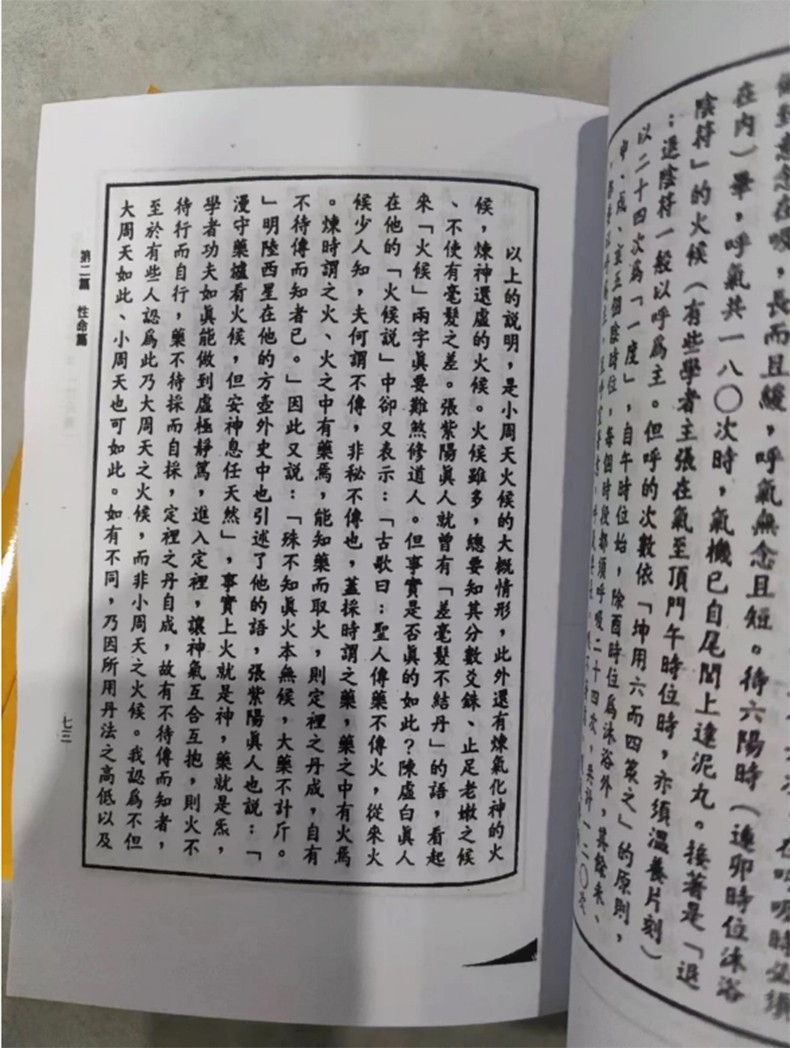 做到意念在吸，長而且緩，呼氣無念且短。待六陽時（連卯時位沐浴
在內）畢，呼氣共一八〇次時，氣機已自尾閭上達泥丸。接著是「退
陰符」的火候（有些學者主張在氣至頂門午時位時，亦須溫養片刻）
；退陰符一般以呼為主。但呼的次數依「坤用六而四策之」的原則，
以二十四次為「一度」，自午時位始，除酉時位為沐浴外，其餘未、
申、戌、亥五個陰時位，每個時段都須呼吸二十四次，共計一二〇次
以上的說明，是小周天火候的大概情形，此外還有煉氣化神的火
候，煉神還虛的火候。火候雖多，總要知其分數爻銖、止足老嫩之候
、不使有毫髮之差。張紫陽眞人就曾有「差毫髮不結丹」的語，看起
來「火候」兩字眞要難煞修道人。但事實是否眞的如此？陳虛白眞人
在他的「火候說」中卻又表示：「古歌曰：聖人傳藥不傳火，從來火
候少人知，夫何謂不傳，非秘不傳也，蓋採時謂之藥，藥之中有火焉
。煉時謂之火、火之中有藥焉，能知藥而取火，則定裡之丹成，自有
不待傳而知者已。」因此又說：「殊不知眞火本無候，大藥不計斤。
」明陸西星在他的方壺外史中也引述了他的語，張紫陽眞人也說：「
漫守藥爐看火候，但安神息任天然」，事實上火就是神，藥就是炁，
學者功夫如眞能做到虛極靜篤，進入定裡，讓神氣互合互抱，則火不
待行而自行，藥不待採而自採，定裡之丹自成，故有不待傳而知者，
至於有些人認為此乃大周天之火候，而非小周天之火候。我認為不但
大周天如此、小周天也可如此。如有不同，乃因所用丹法之高低以及
第二篇　性命篇
七三